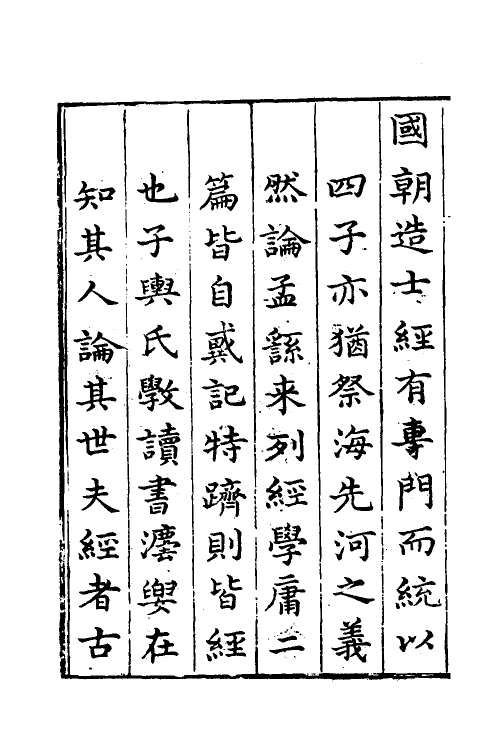 國朝造士經有專門而統以
四子亦猶祭海先河之義
然論孟繇來列經學庸二
篇皆自戴記特躋則皆經
也子輿氏敎讀書灋與在
知其人論其世夫經者古